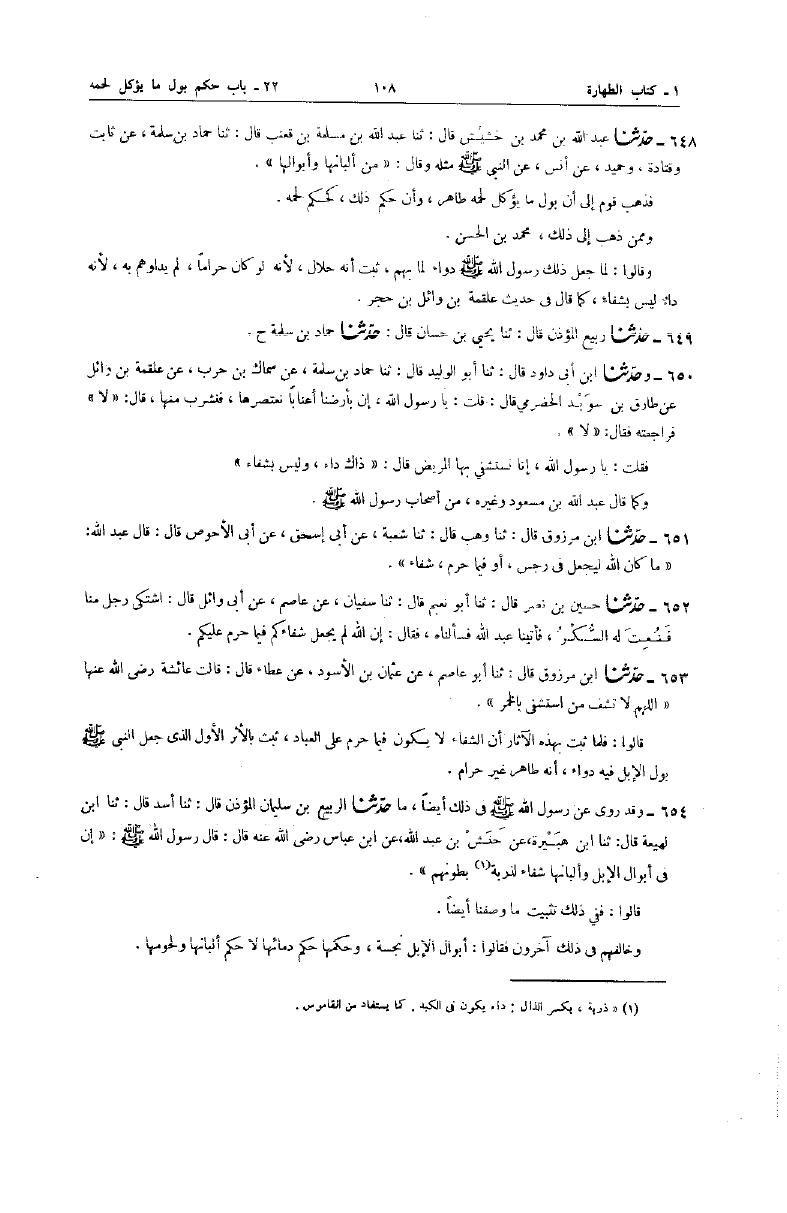 ١ - كتاب الطهارة ١٠٨ ٢٢ - باب حكم بول ما يؤكل لحمه
٦٤٨ - حدثنا عبد الله بن محمد بن خشيش قال : ثنا عبد الله بن مسلمة بن قعنب قال : ثنا حماد بن سلمة ، عن ثابت
وقتادة ، وحميد ، عن أنس ، عن النبي ﷺ مثله وقال : « من ألبانها وأبوالها » .
فذهب قوم إلى أن بول ما يؤكل لحمه طاهر ، وأن حكم ذلك ، كحكم لحمه .
وممن ذهب إلى ذلك ، محمد بن الحسن .
وقالوا : لما جعل ذلك رسول الله ﷺ دواء لما بهم ، ثبت أنه حلال ، لأنه لو كان حراماً ، لم يداوهم به ، لأنه
داء ليس بشفاء ، كما قال فى حديث علقمة بن وائل بن حجر .
٦٤٩ - حدثنا ربيع المؤذن قال : ثنا يحيى بن حسان قال : حدثنا حماد بن سلمة ح .
٦٥٠ - وحدثنا ابن أبى داود قال : ثنا أبو الوليد قال : ثنا حماد بن سلمة ، عن سماك بن حرب ، عن علقمة بن وائل
عن طارق بن سويد الحضرمي قال : قلت : يا رسول الله ، إن بأرضنا أعناباً نعتصرها ، فنشرب منها ، قال: « لا »
فراجعته فقال: « لا » .
فقلت : يا رسول الله ، إنا نستشفي بها المريض قال : « ذاك داء ، وليس بشفاء »
وكما قال عبد الله بن مسعود وغيره ، من أصحاب رسول الله ﷺ .
٦٥١ - حدثنا ابن مرزوق قال : ثنا وهب قال : ثنا شعبة ، عن أبى إسحق ، عن أبى الأحوص قال : قال عبد الله:
« ما كان الله ليجعل فى رجس ، أو فيما حرم ، شفاء » .
٦٥٢ - حدثنا حسين بن نصر قال : ثنا أبو نعيم قال : ثنا سفيان ، عن عاصم ، عن أبى وائل قال : اشتكى رجل منا
فَنُعِتَ له السُّكْرُ ، فأتينا عبد الله فسألناه ، فقال : إن الله لم يجعل شفاءكم فيما حرم عليكم .
٦٥٣ - حدثنا ابن مرزوق قال : ثنا أبو عاصم ، عن عثمان بن الأسود ، عن عطاء قال : قالت عائشة رضى الله عنها
« اللهم لا تشف من استشفى بالخمر » .
قالوا : فلما ثبت بهذه الآثار أن الشفاء لا يكون فيما حرم على العباد ، ثبت بالأثر الأول الذى جعل النبي ﷺ
بول الإبل فيه دواء ، أنه طاهر غير حرام .
٦٥٤ - وقد روى عن رسول الله ﷺ فى ذلك أيضاً ، ما حدثنا الربيع بن سليمان المؤذن قال : ثنا أسد قال : ثنا ابن
لهيعة قال: ثنا ابن هبيرة،عن حَنَش بن عبد الله،عن ابن عباس رضى الله عنه قال : قال رسول الله ﷺ : « إن
فى أبوال الإبل وألبانها شفاء لذربة(١) بطونهم » .
قالوا : ففي ذلك تثبيت ما وصفنا أيضاً .
وخالفهم فى ذلك آخرون فقالوا : أبوال الإبل نجسة ، وحكمها حكم دمائها لا حكم ألبانها ولحومها .
(١) « ذربة ، بكسر الذال : داء يكون فى الكبد . كما يستفاد من القاموس .